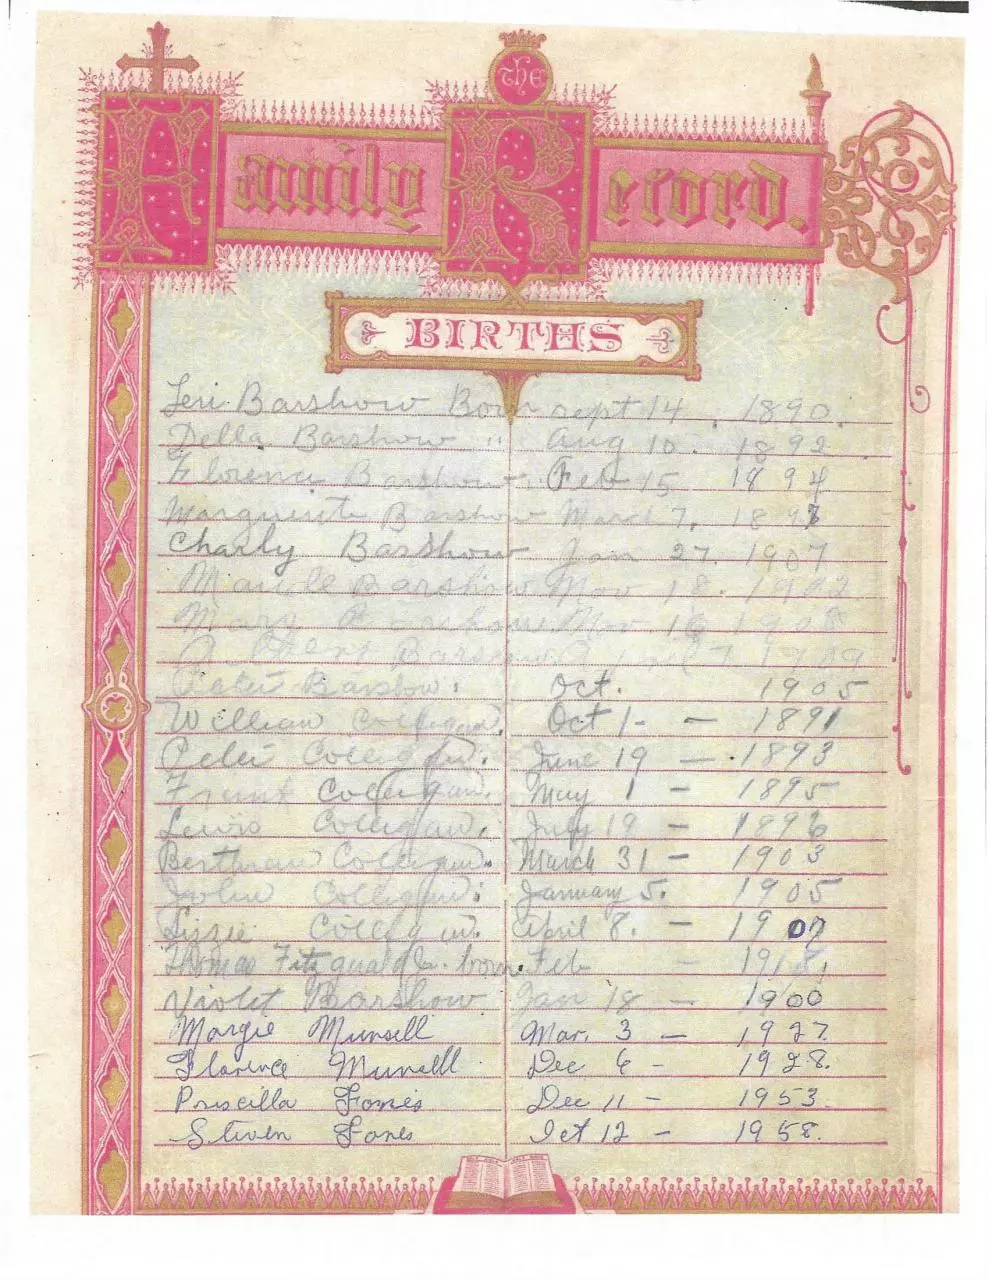 The
Family Record.
BIRTHS
Leri Barshow Born sept 14. 1890.
Della Barshow " Aug 10. 1892
Florence Barshow Feb 15 1894
Marguerite Barshow March 7. 189
Charly Barshow Jan 27. 1907
Maude Barshow Nov 18. 1902
Mary Barshow Nov. 16 1908
Barshow 1909
Peter Barshow. Oct. 1905
William Colligan. Oct 1- - 1891
Peter Colligan. June 19 - 1893
Frank Colligan. May 1 - 1895
Lewis Colligan. July 19 - 1896
Bertman Colligan. March 31 - 1903
John Colligan. January 5. 1905
Lizzie Colligan. April 8. - 1907
Thomas born. Feb - 
Violet Barshow Jan 18 - 1900
Margie Munsell Mar. 3 - 1927.
Florence Munsell Dec 6 - 1928.
Priscilla Fones Dec 11 - 1953.
Stiven Fones Oct 12 - 1958.